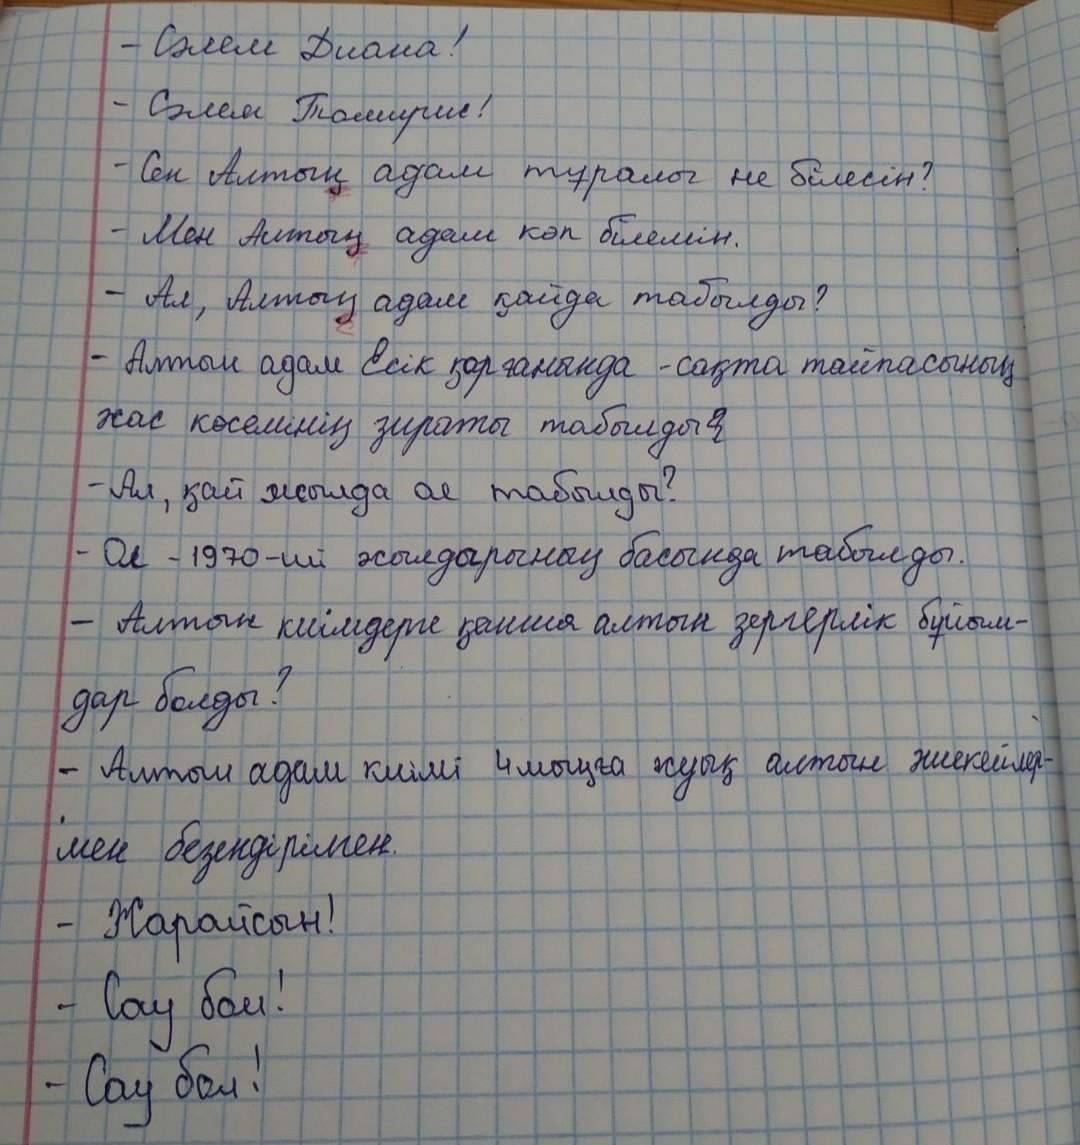 - Сәлем Диана!
- Сәлем Томирис!
- Сен Алтың адам тұралы не білесін?
- Мен Алтың адам көп білемін.
- Ал, Алтың адам қайда табылды?
- Алтын адам Есік қорғанында - сақта тайпасының
жас көсемінің зираты табылды
- Ал, қай жылда ол табылды?
- Ол - 1970-ші жылдарының басында табылды.
- Алтын киімдерге қанша алтын зергерлік бұйым-
дар болды?
- Алтын адам киімі 4мыңға жуық алтын жиекейлер-
імен безендірілген.
- Жарайсын!
- Сау бол!
- Сау бол!